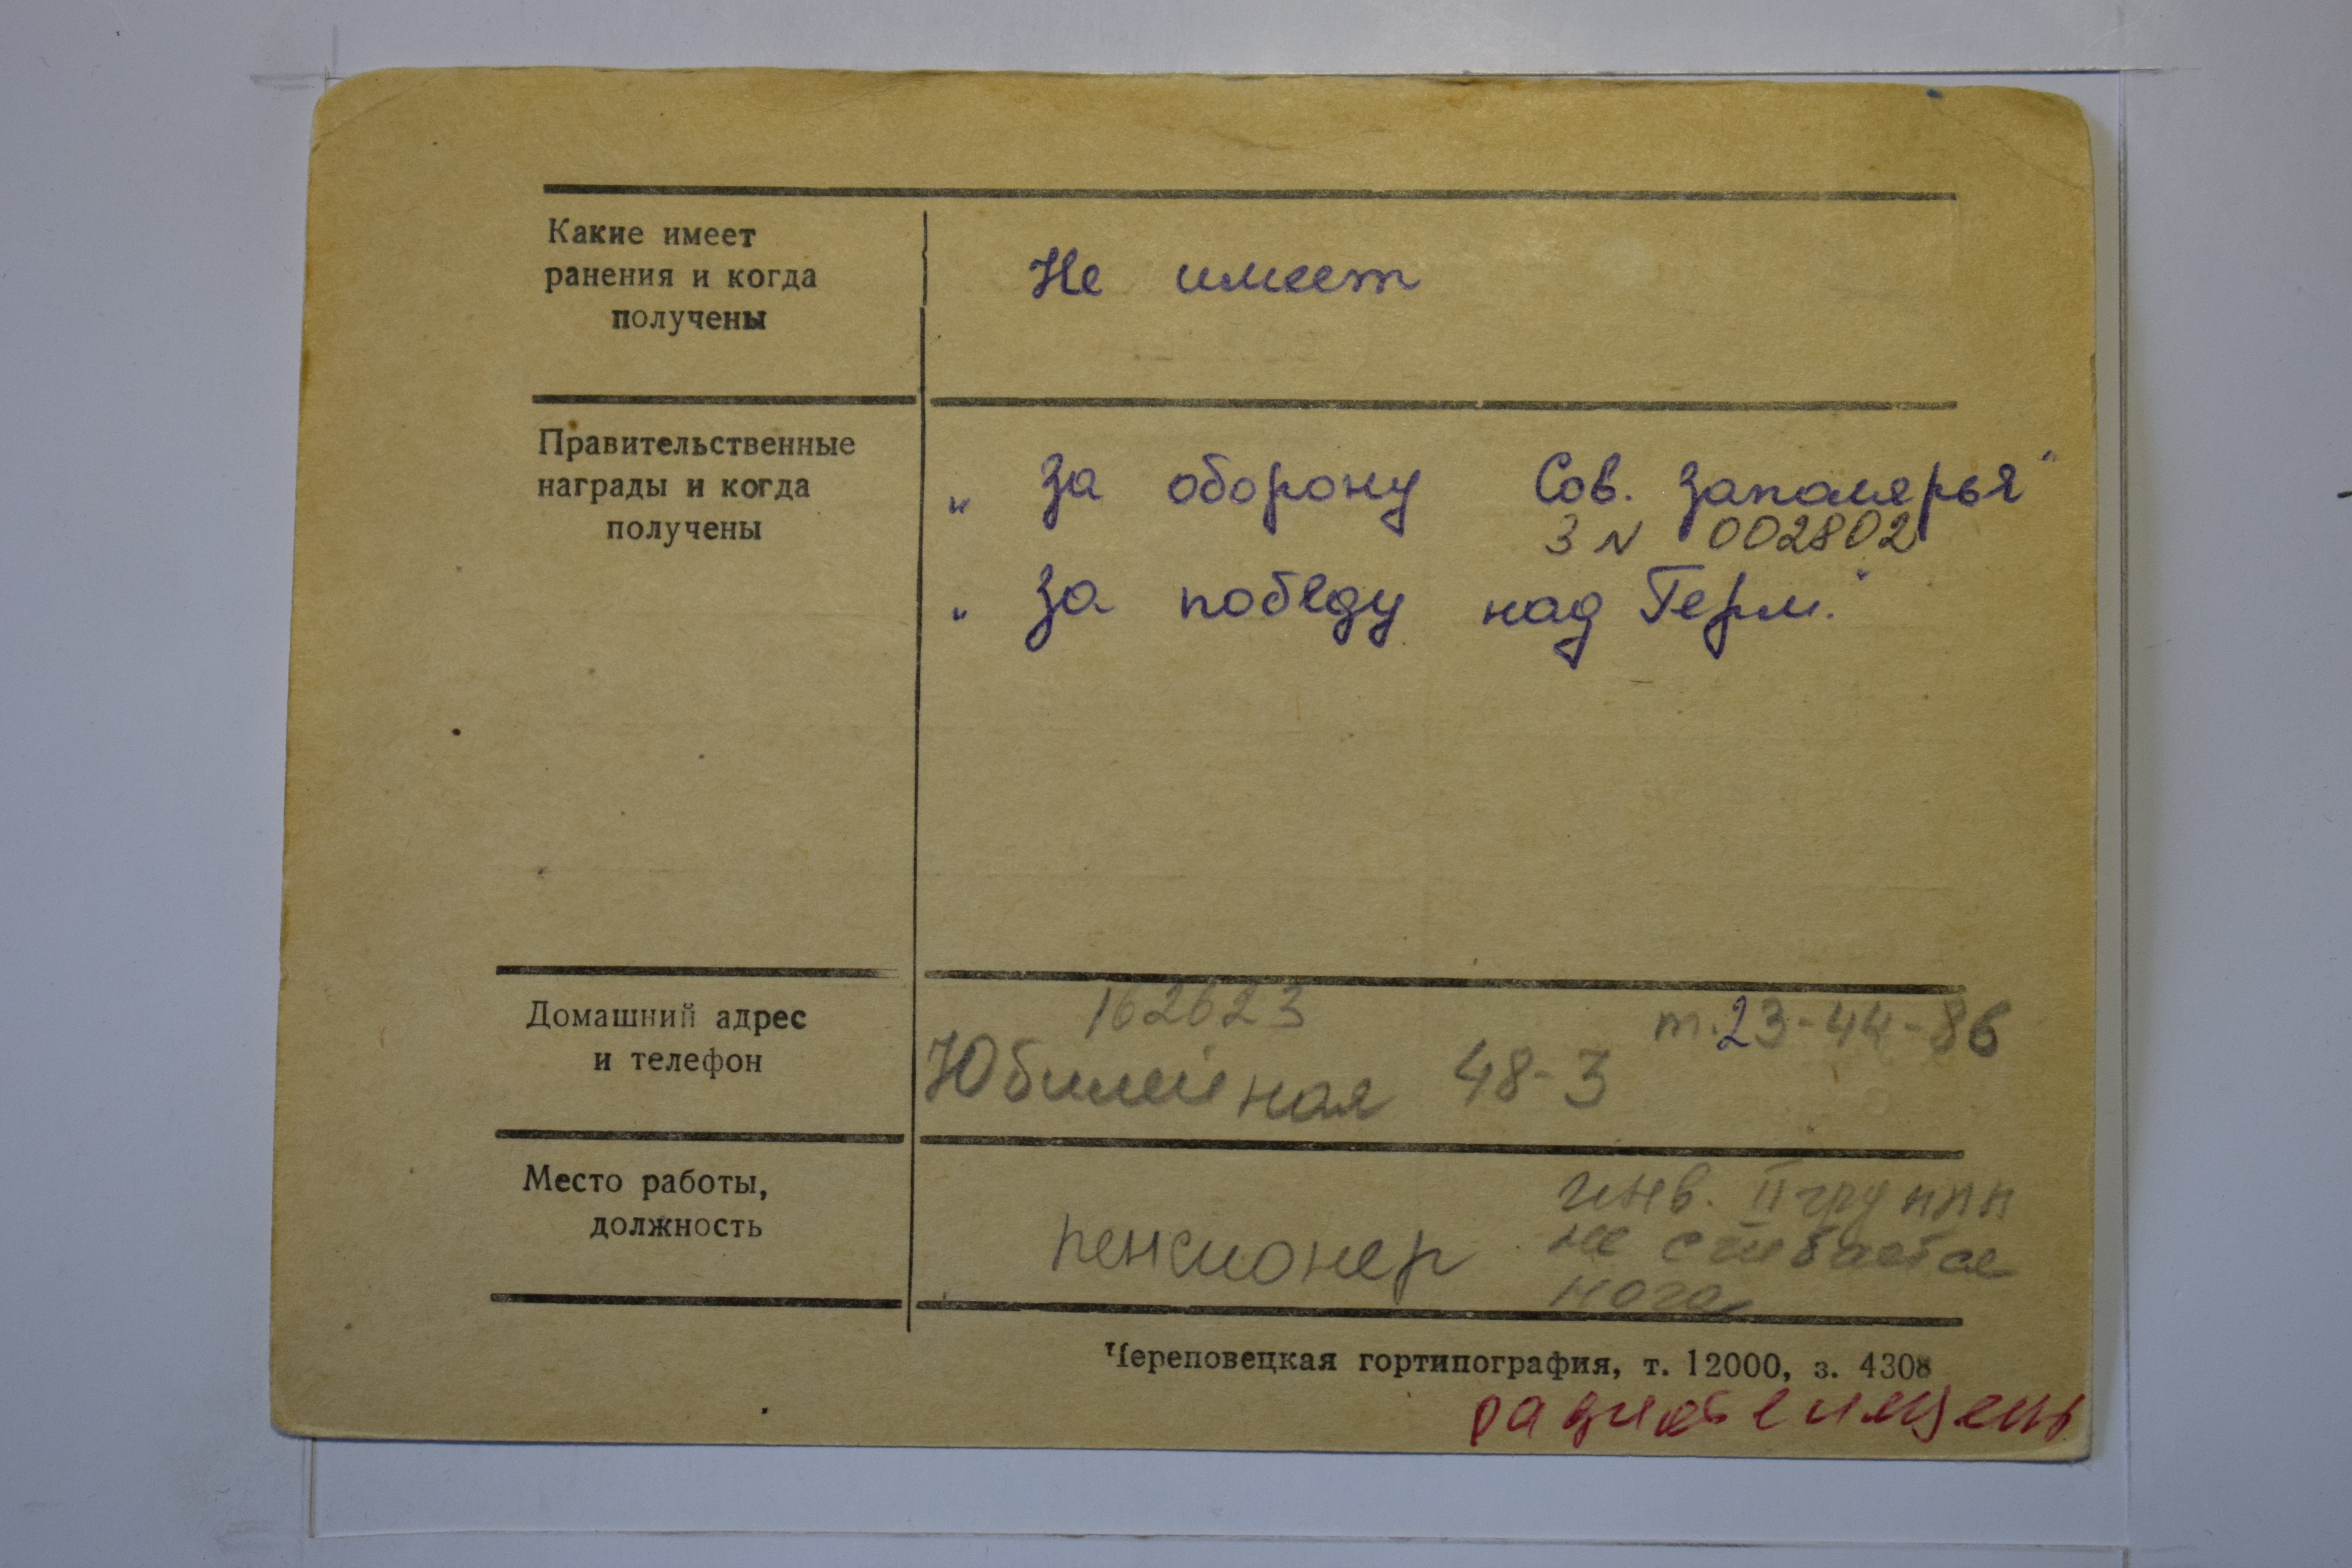 Какие имеет
ранения и когда
получены
Не имеет
Правительственные
награды и когда
получены
„ За оборону Сов. Заполярья“
З N 002802
„ За победу над Герм.“
Домашний адрес
и телефон
162623
т. 23-44-86
Юбилейная 48-3
Место работы,
должность
пенсионер
инв. II групп
не сгибается
нога
Череповецкая гортипография, т. 12000, з. 4308